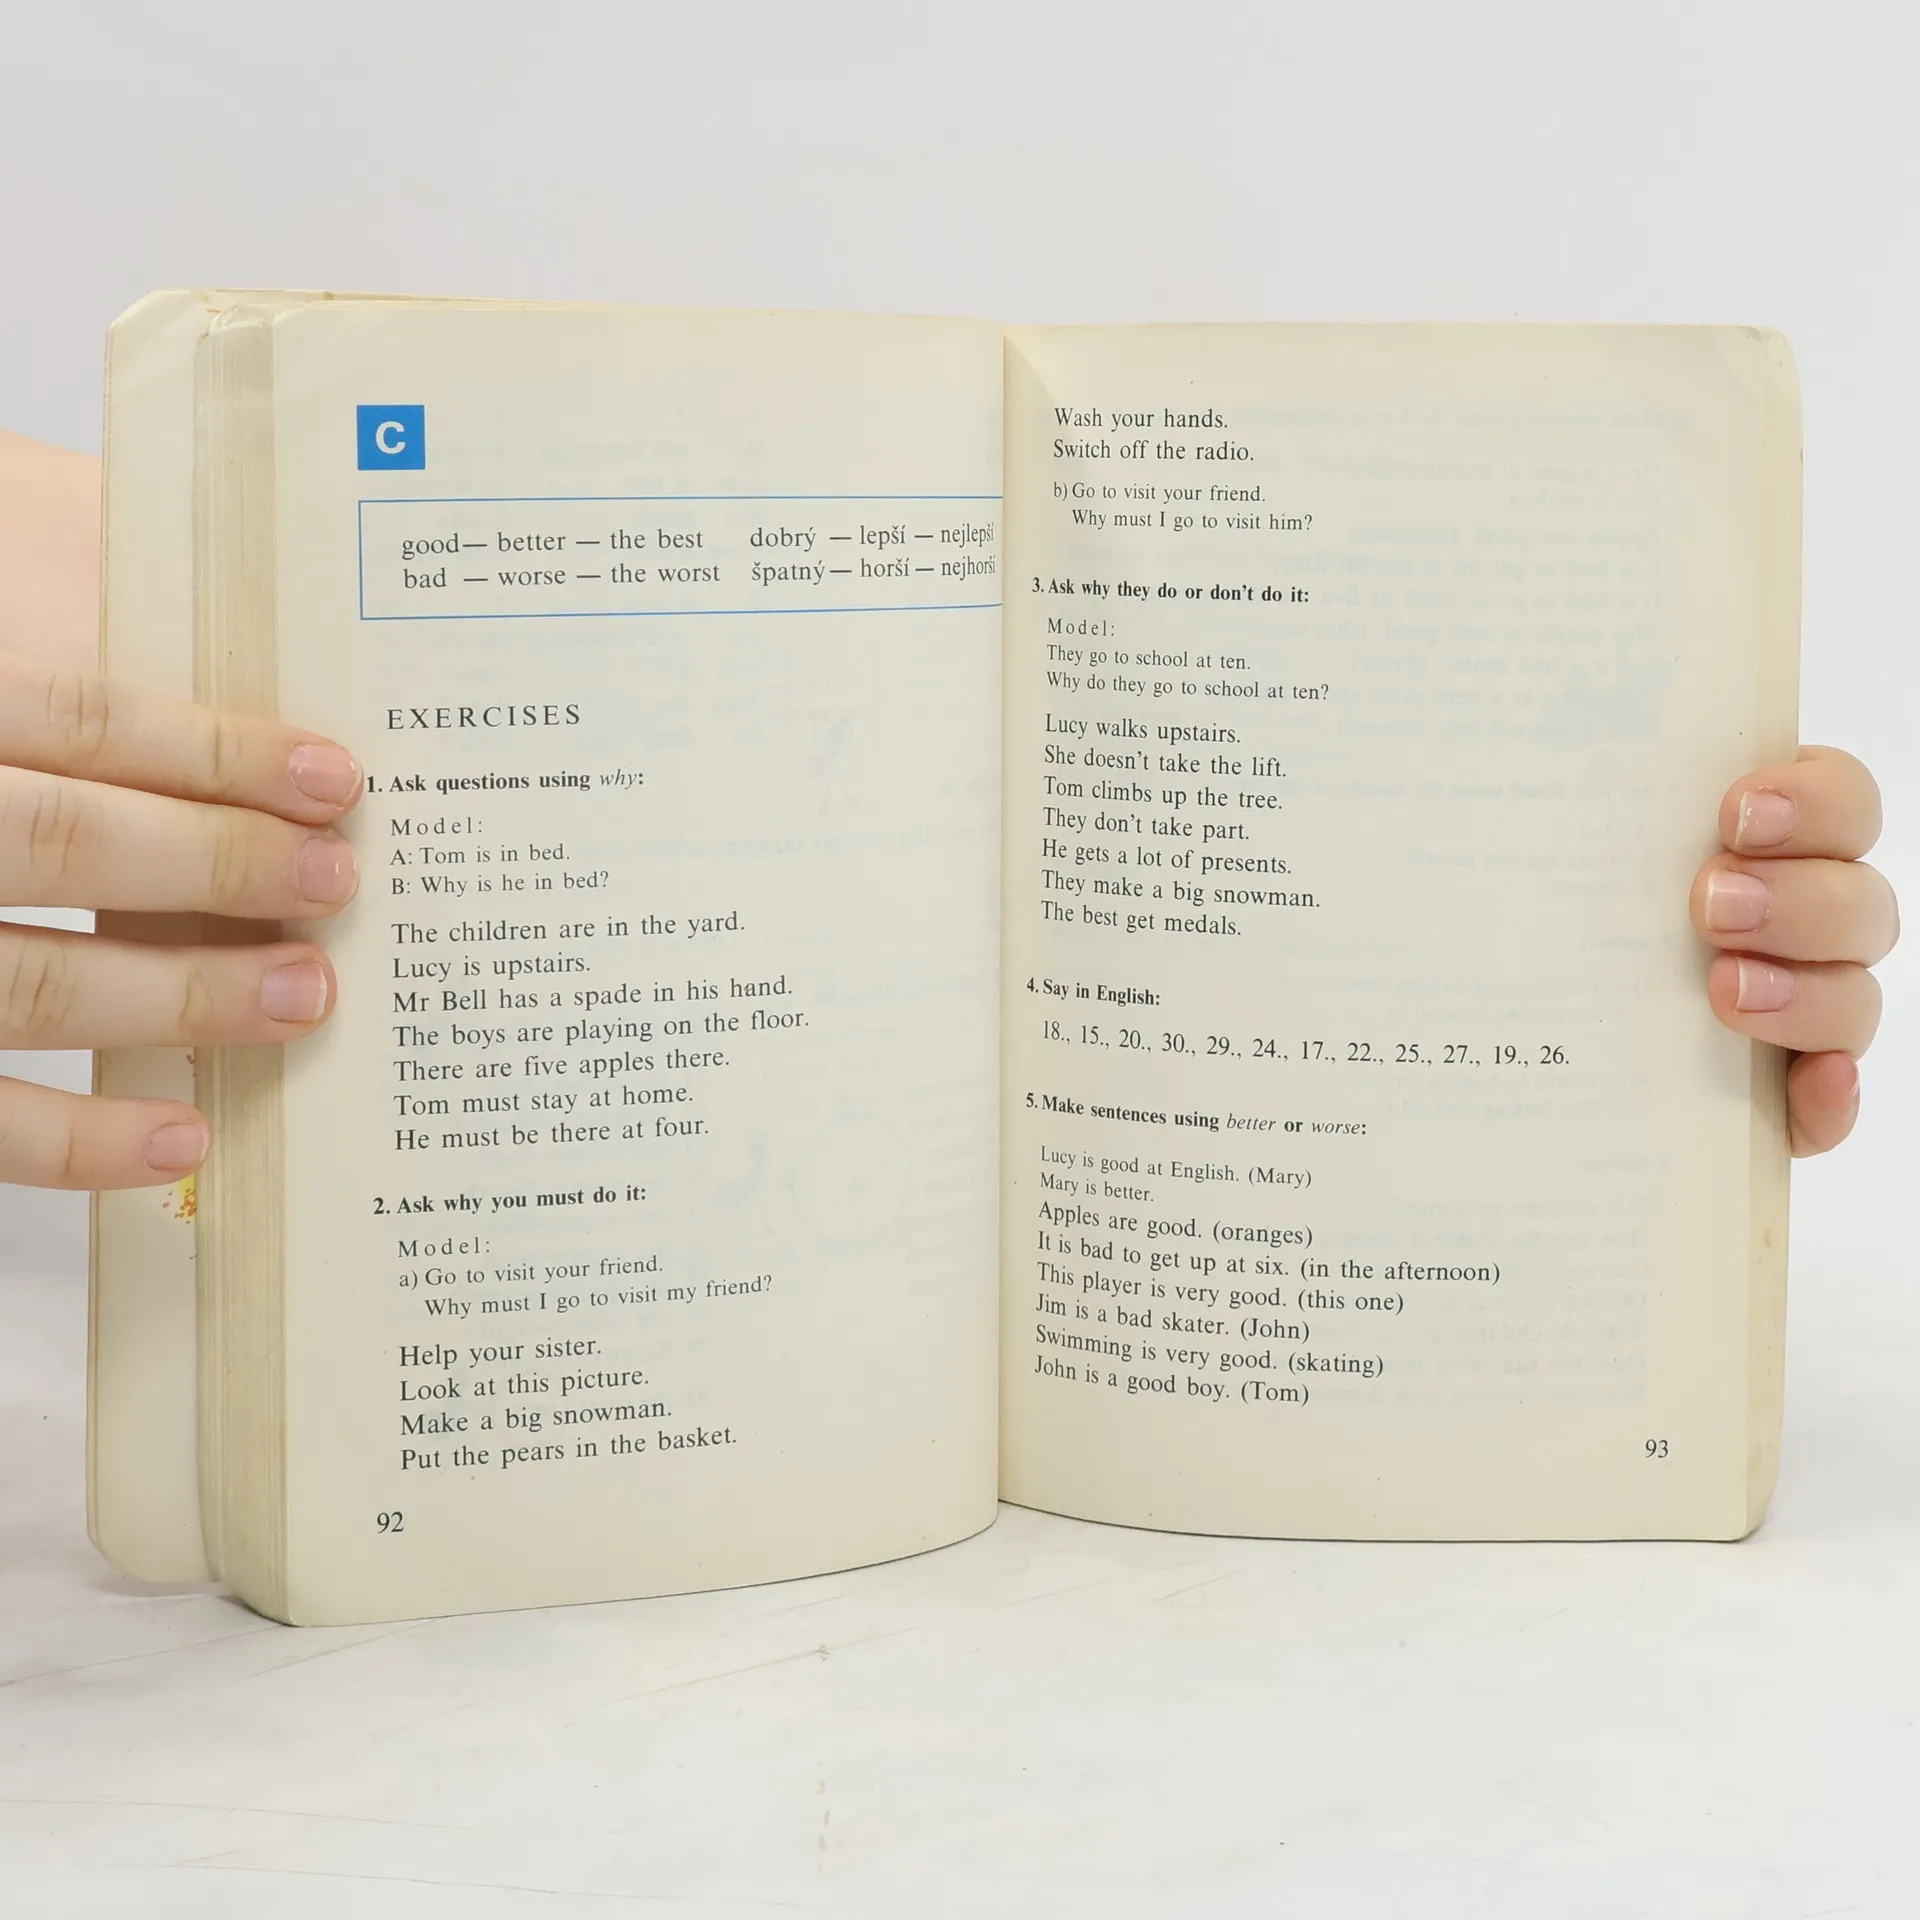 C
good — better — the best dobrý — lepší — nejlepší
bad — worse — the worst špatný — horší — nejhorší
EXERCISES
1. Ask questions using why:
Model:
A: Tom is in bed.
B: Why is he in bed?
The children are in the yard.
Lucy is upstairs.
Mr Bell has a spade in his hand.
The boys are playing on the floor.
There are five apples there.
Tom must stay at home.
He must be there at four.
2. Ask why you must do it:
Model:
a) Go to visit your friend.
Why must I go to visit my friend?
Help your sister.
Look at this picture.
Make a big snowman.
Put the pears in the basket.
92
Wash your hands.
Switch off the radio.
b) Go to visit your friend.
Why must I go to visit him?
3. Ask why they do or don't do it:
Model:
They go to school at ten.
Why do they go to school at ten?
Lucy walks upstairs.
She doesn't take the lift.
Tom climbs up the tree.
They don't take part.
He gets a lot of presents.
They make a big snowman.
The best get medals.
4. Say in English:
18., 15., 20., 30., 29., 24., 17., 22., 25., 27., 19., 26.
5. Make sentences using better or worse:
Lucy is good at English. (Mary)
Mary is better.
Apples are good. (oranges)
It is bad to get up at six. (in the afternoon)
This player is very good. (this one)
Jim is a bad skater. (John)
Swimming is very good. (skating)
John is a good boy. (Tom)
93